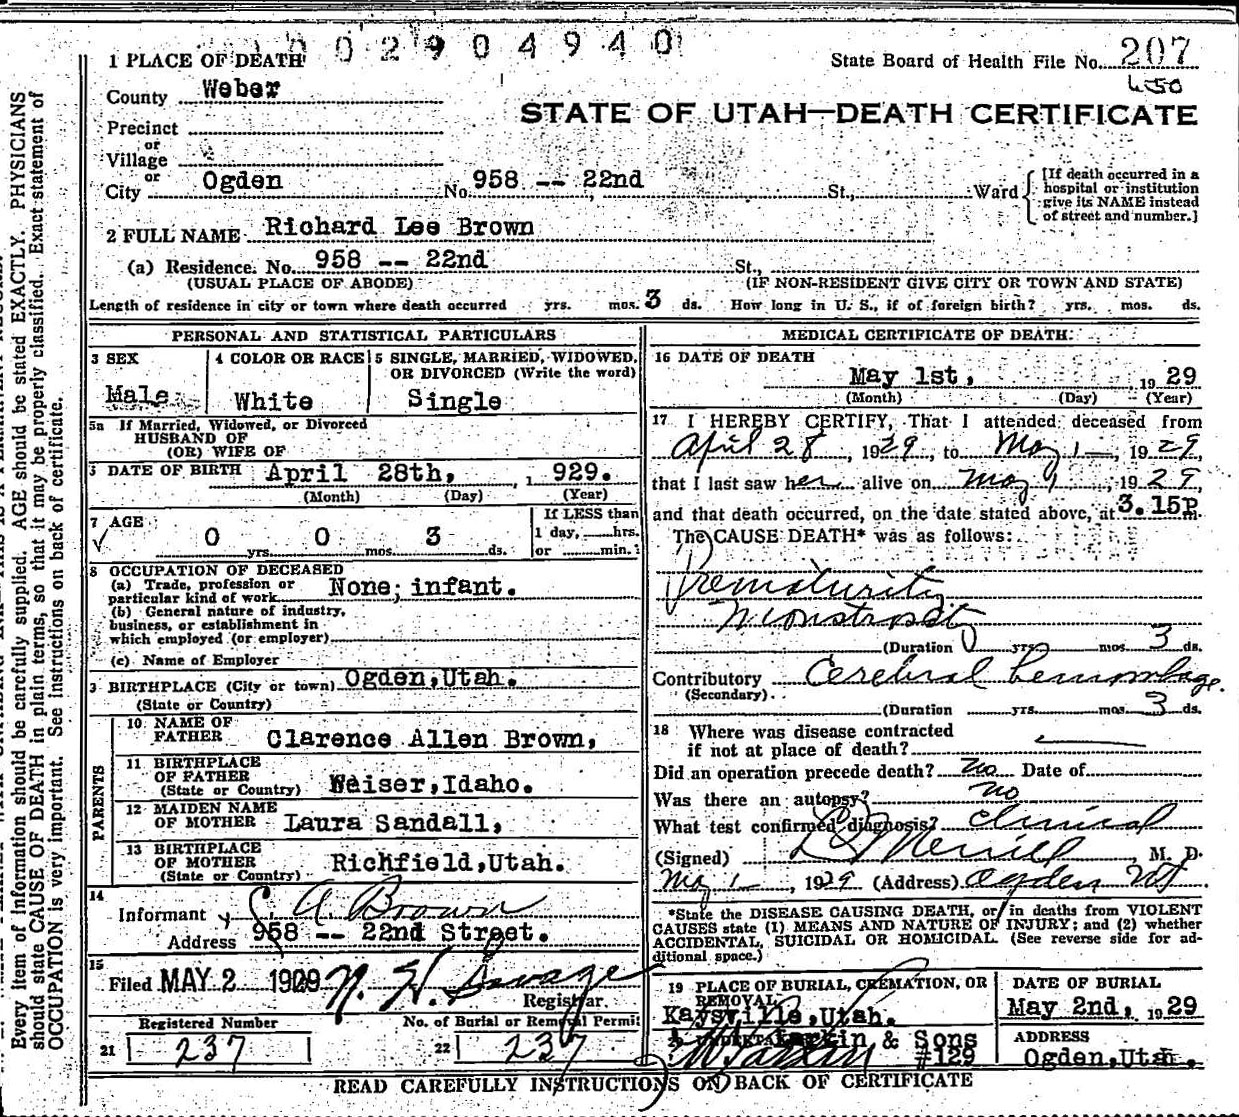 0 0 2 9 0 4 9 4 0
1 PLACE OF DEATH
State Board of Health File No. 207
450
County Weber
STATE OF UTAH—DEATH CERTIFICATE
Precinct
or
Village
or
City Ogden No. 958 -- 22nd St., Ward
[If death occurred in a
hospital or institution
give its NAME instead
of street and number.]
2 FULL NAME Richard Lee Brown
(a) Residence. No. 958 -- 22nd St.,
(USUAL PLACE OF ABODE) (IF NON-RESIDENT GIVE CITY OR TOWN AND STATE)
Length of residence in city or town where death occurred yrs. mos. 3 ds. How long in U. S., if of foreign birth? yrs. mos. ds.
PERSONAL AND STATISTICAL PARTICULARS
3 SEX
Male
4 COLOR OR RACE
White
5 SINGLE, MARRIED, WIDOWED,
OR DIVORCED (Write the word)
Single
5a If Married, Widowed, or Divorced
HUSBAND OF
(OR) WIFE OF
DATE OF BIRTH April 28th, 1929.
(Month) (Day) (Year)
7 AGE
0 yrs. 0 mos. 3 ds.
If LESS than
1 day, hrs.
or min.
8 OCCUPATION OF DECEASED
(a) Trade, profession or
particular kind of work None; infant.
(b) General nature of industry,
business, or establishment in
which employed (or employer)
(c) Name of Employer
BIRTHPLACE (City or town) Ogden, Utah.
(State or Country)
PARENTS
10 NAME OF
FATHER Clarence Allen Brown,
11 BIRTHPLACE
OF FATHER
(State or Country) Weiser, Idaho.
12 MAIDEN NAME
OF MOTHER Laura Sandall,
13 BIRTHPLACE
OF MOTHER
(State or Country) Richfield, Utah.
14
Informant C. A. Brown
Address 958 -- 22nd Street.
15
Filed MAY 2 1929 N. H. Savage
Registrar.
Registered Number No. of Burial or Removal Permit
21 237 22 237
MEDICAL CERTIFICATE OF DEATH
16 DATE OF DEATH
May 1st, 1929
(Month) (Day) (Year)
17 I HEREBY CERTIFY, That I attended deceased from
April 28, 1929, to May 1, 1929,
that I last saw her alive on May 1, 1929,
and that death occurred, on the date stated above, at 3.15P m.
The CAUSE DEATH* was as follows:
Prematurity
Monstrosity
(Duration yrs. mos. 3 ds.
Contributory Cerebral hemorrhage.
(Secondary)
(Duration yrs. mos. 3 ds.
18 Where was disease contracted
if not at place of death?
Did an operation precede death? no Date of
Was there an autopsy? no
What test confirmed diagnosis? clinical
(Signed) Merrill, M. D.
May 1, 1929 (Address) Ogden Ut
*State the DISEASE CAUSING DEATH, or in deaths from VIOLENT
CAUSES state (1) MEANS AND NATURE OF INJURY; and (2) whether
ACCIDENTAL, SUICIDAL OR HOMICIDAL. (See reverse side for ad-
ditional space.)
19 PLACE OF BURIAL, CREMATION, OR
REMOVAL
Kaysville, Utah.
DATE OF BURIAL
May 2nd, 1929
Larkin & Sons
#129
ADDRESS
Ogden, Utah.
READ CAREFULLY INSTRUCTIONS ON BACK OF CERTIFICATE
Every item of information should be carefully supplied. AGE should be stated EXACTLY. PHYSICIANS
should state CAUSE OF DEATH in plain terms, so that it may be properly classified. Exact statement of
OCCUPATION is very important. See instructions on back of certificate.